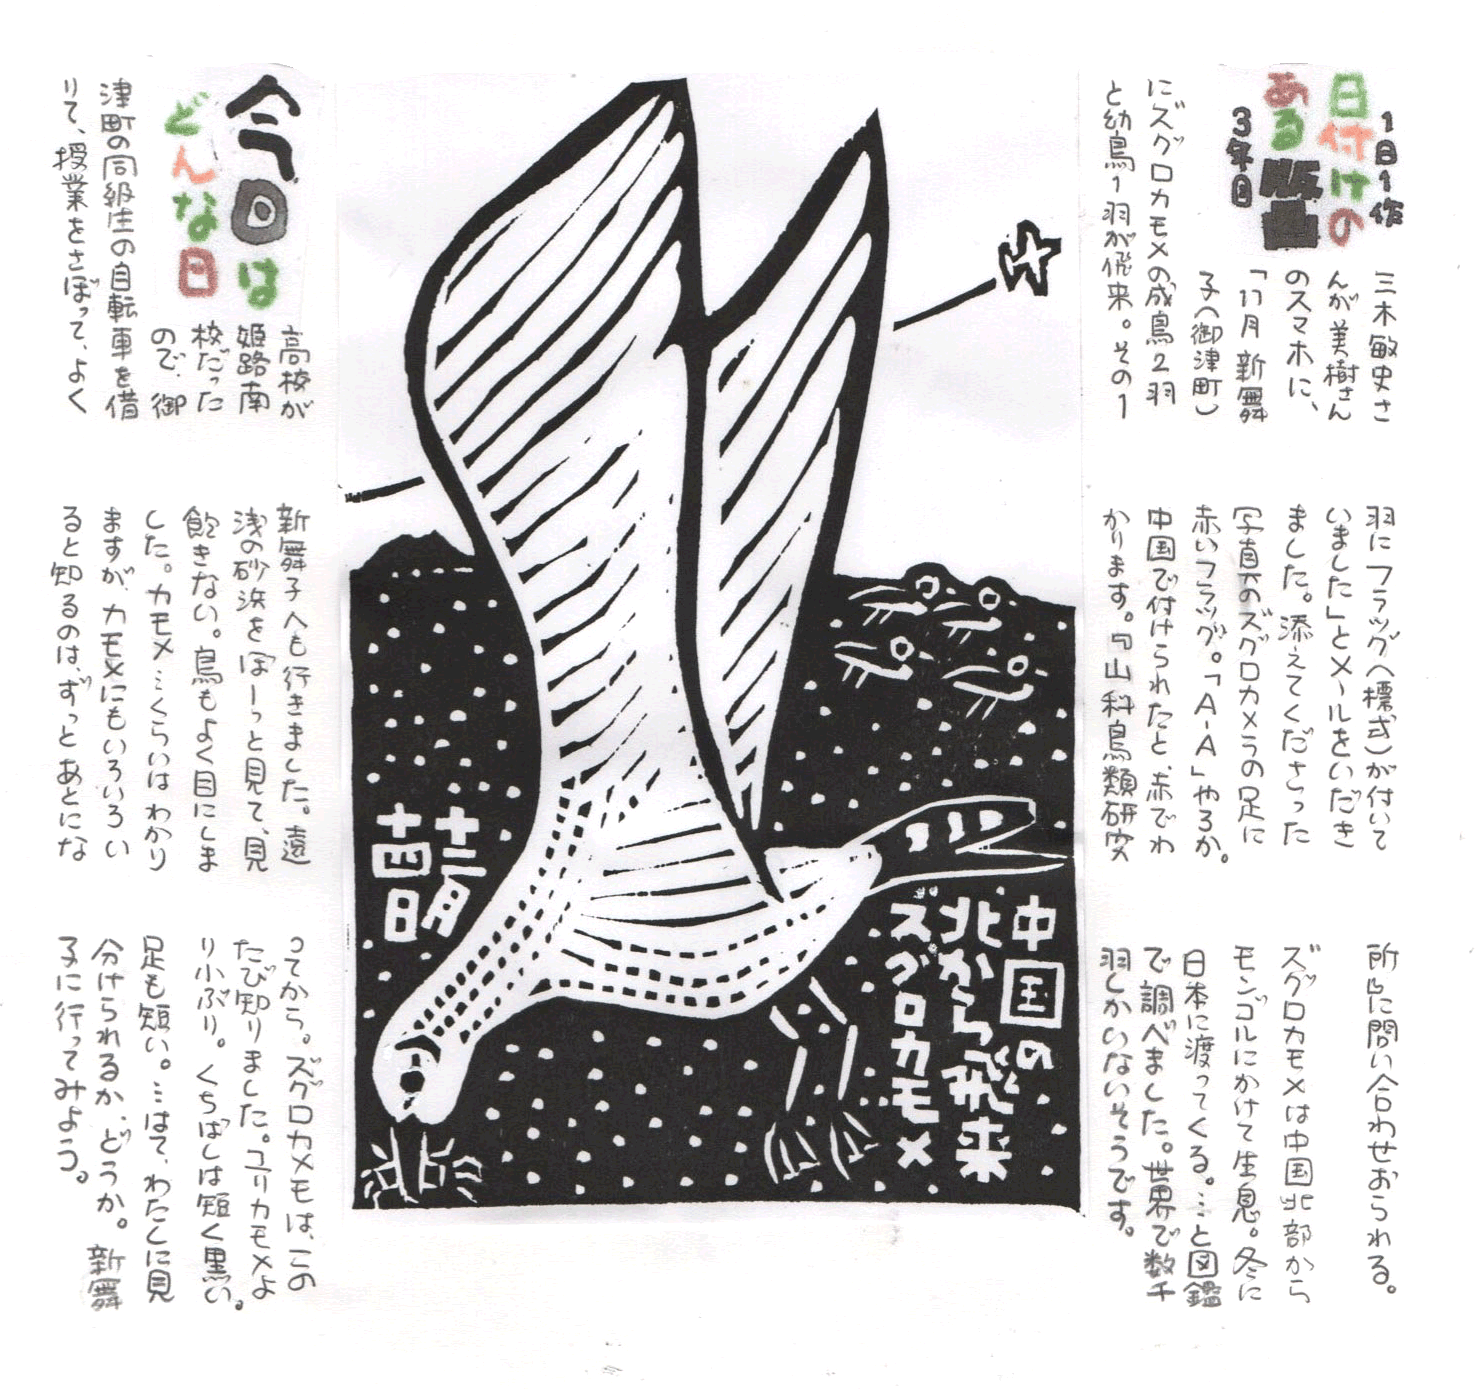 1日1作
日付けの
ある版画
3年目
三木敏史さ
んが美樹さん
のスマホに、
「11月 新舞
子(御津町)
にズグロカモメの成鳥2羽
と幼鳥1羽が飛来。その1
羽にフラッグ(標式)が付いて
いました」とメールをいただき
ました。添えてくださった
写真のズグロカメラの足に
赤いフラッグ。「A-A」やろか。
中国で付けられたと、赤でわ
かります。『山科鳥類研究
所』に問い合わせおられる。
ズグロカモメは中国北部から
モンゴルにかけて生息。冬に
日本に渡ってくる。…と図鑑
で調べました。世界で数千
羽しかいないそうです。
中国の
北から飛来
ズグロカモメ
十二月
十四日
今日は
どんな日
高校が
姫路南
校だった
ので、御
津町の同級生の自転車を借
りて、授業をさぼって、よく
新舞子へも行きました。遠
浅の砂浜をぼーっと見て、見
飽きない。鳥もよく目にしま
した。カモメ…くらいはわかり
ますが、カモメにもいろいろい
ると知るのは、ずっとあとにな
ってから。ズグロカモメは、この
たび知りました。ユリカモメよ
り小ぶり。くちばしは短く黒い。
足も短い。…はて、わたしに見
分けられるか、どうか。新舞
子に行ってみよう。